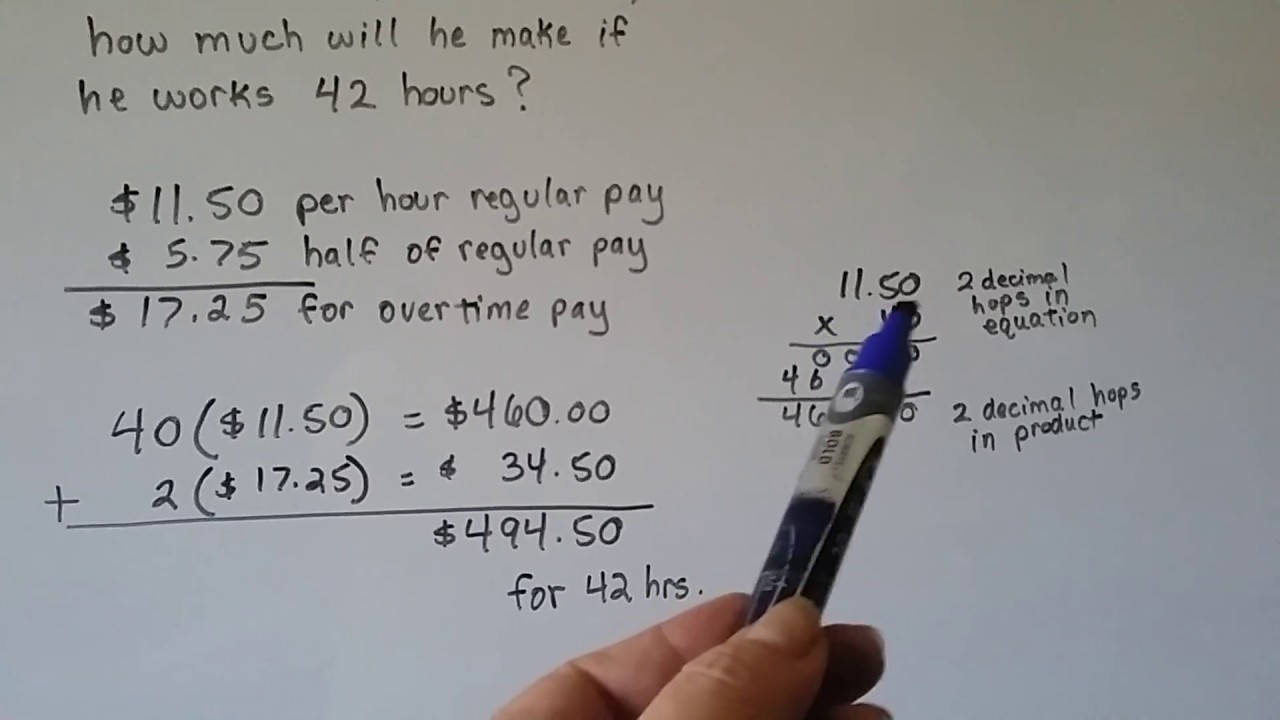 how much will he make if
he works 42 hours?
$11.50 per hour regular pay
$ 5.75 half of regular pay
$ 17.25 for overtime pay
40 ($11.50) = $460.00
+ 2 ($ 17.25) = $ 34.50
$494.50
for 42 hrs.
11.50
x
46
2 decimal
hops in
equation
2 decimal hops
in product
BOLD